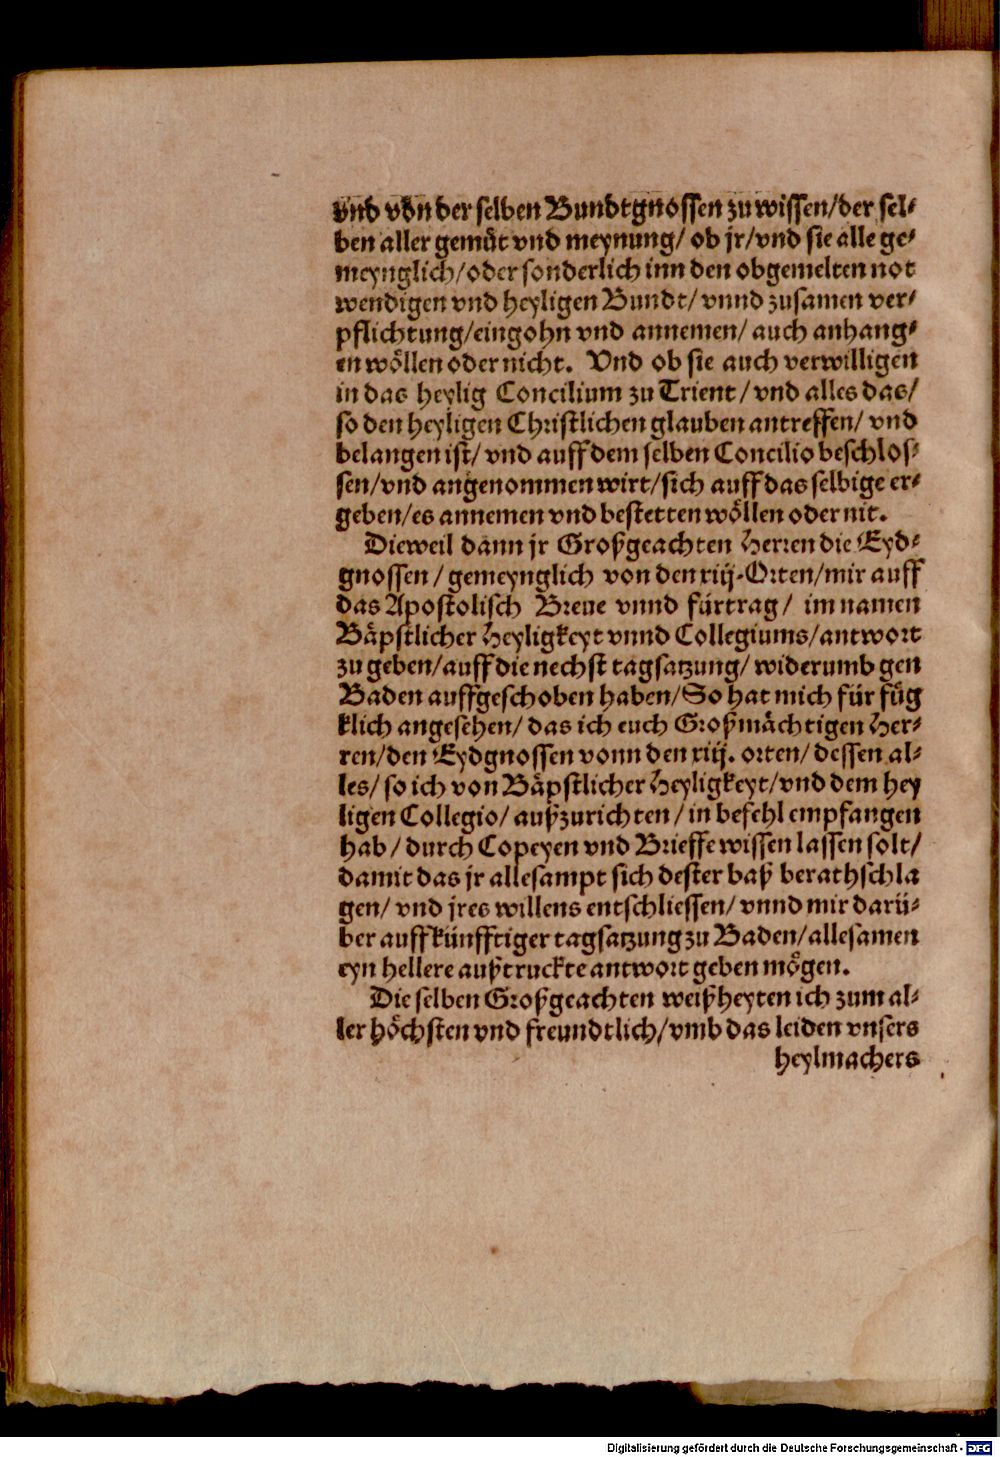 vnd von der selben Bundtgnossen zu wissen/der sel⸗
ben aller gemüt vnd meynung/ ob jr/vnd sie alle ge⸗
meynglich/oder sonderlich inn den obgemelten not
wendigen vnd heyligen Bundt/ vnnd zusamen ver⸗
pflichtung/eingohn vnd annemen/ auch anhang⸗
en wöllen oder nicht. Vnd ob sie auch verwilligen
in das heylig Concilium zu Trient/ vnd alles das/
so den heyligen Christlichen glauben antreffen/ vnd
belangen ist/ vnd auff dem selben Concilio beschlos⸗
sen/vnd angenommen wirt/sich auff das selbige er⸗
geben/es annemen vnd bestetten wöllen oder nit.
Dieweil dann jr Großgeachten Herren die Eyd⸗
gnossen/ gemeynglich von den xiij. Orten/mir auff
das Apostolisch Breue vnnd fürtrag/ im namen
Bäpstlicher Heyligkeyt vnnd Collegiums/antwort
zu geben/auff die nechst tagsatzung/ widerumb gen
Baden auffgeschoben haben/So hat mich für füg
klich angesehen/ das ich euch Großmächtigen Her⸗
ren/den Eydgnossen vonn den xiij. orten/ dessen al⸗
les/ so ich von Bäpstlicher Heyligkeyt/vnd dem hey
ligen Collegio/ außzurichten/ in befehl empfangen
hab/ durch Copeyen vnd Brieffe wissen lassen solt/
damit das jr allesampt sich dester baß berathschla
gen/ vnd jres willens entschliessen/ vnnd mir darü⸗
ber auff künfftiger tagsatzung zu Baden/allesamen
eyn hellere außtruckte antwort geben mögen.
Die selben Großgeachten weißheyten ich zum al⸗
ler höchsten vnd freundtlich/vmb das leiden vnsers
heylmachers
Digitalisierung gefördert durch die Deutsche Forschungsgemeinschaft - DFG